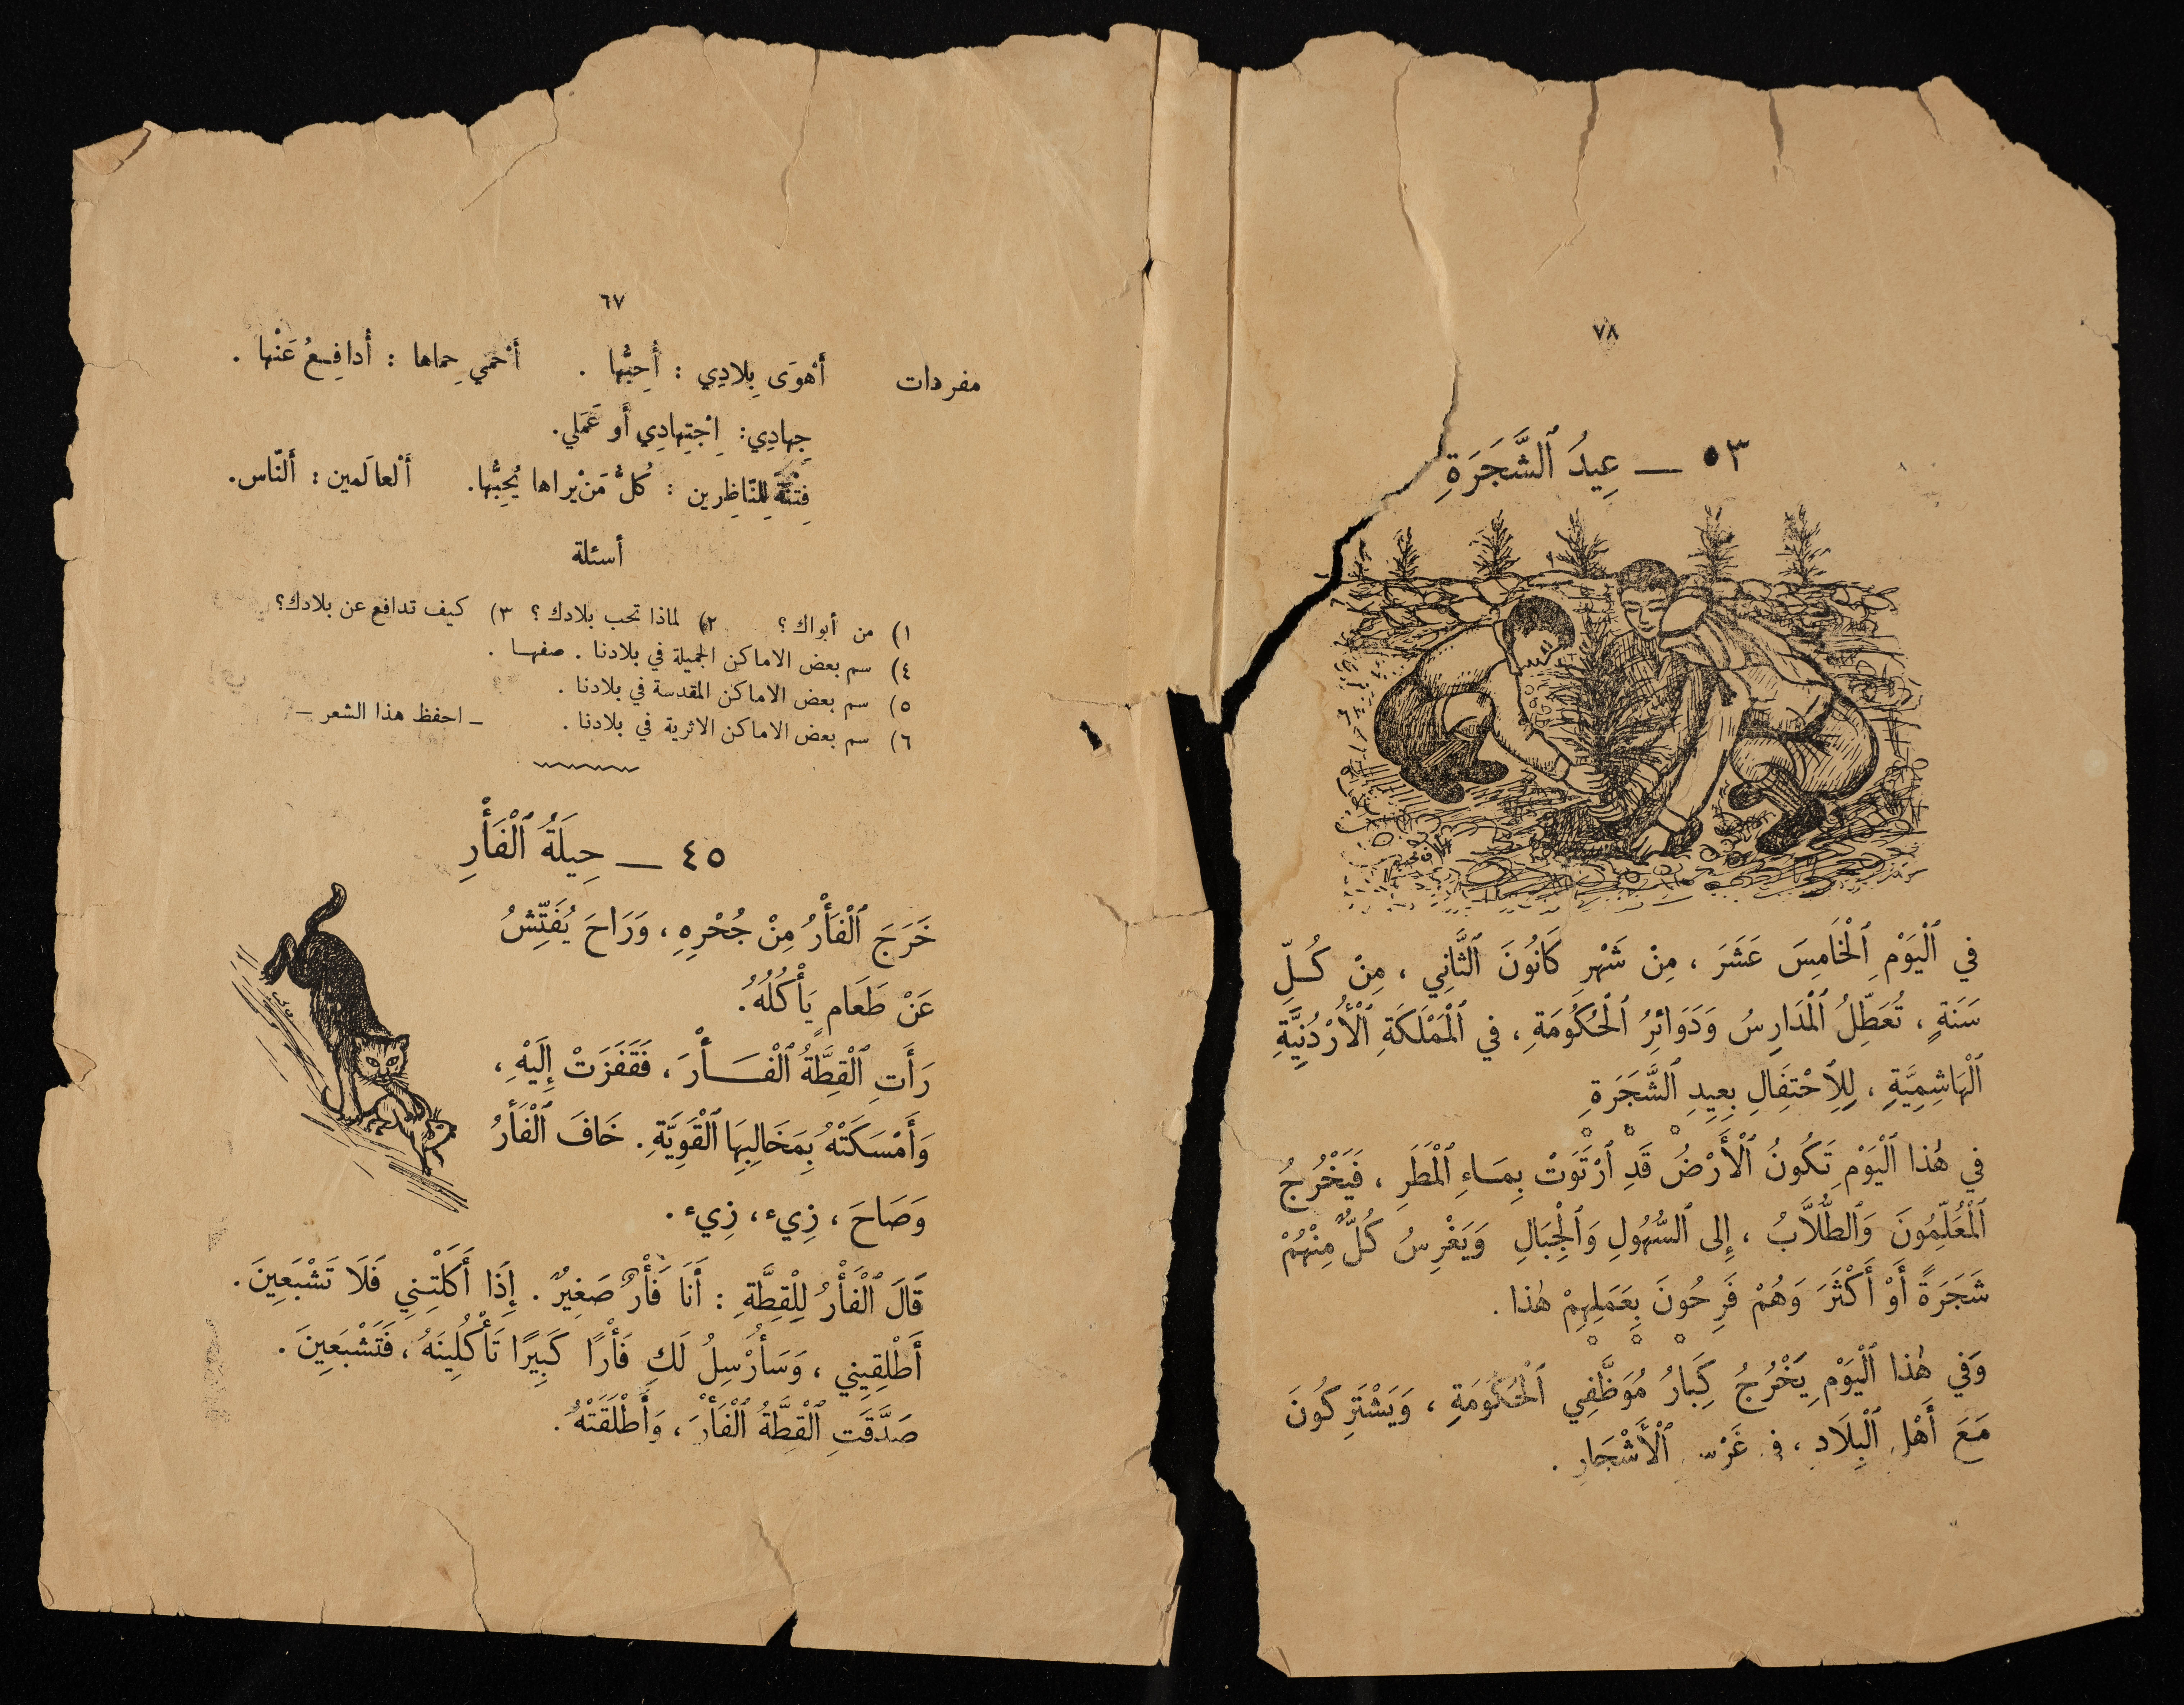 ٧٨
٥٣ — عِيدُ ٱلشَّجَرَةِ
في ٱلْيَوْمِ ٱلْخَامِسَ عَشَرَ ، مِنْ شَهْرِ كَانُونَ ٱلثَّانِي ، مِنْ كُلِّ
سَنَةٍ ، تُعَطِّلُ ٱلْمَدَارِسُ وَدَوَائِرُ ٱلْحُكُومَةِ ، في ٱلْمَمْلَكَةِ ٱلْأُرْدُنِيَّةِ
ٱلْهَاشِمِيَّةِ ، لِلِٱحْتِفَالِ بِعِيدِ ٱلشَّجَرَةِ
في هٰذا ٱلْيَوْمِ تَكُونُ ٱلْأَرْضُ قَدِ ٱرْتَوَتْ بِمَاءِ ٱلْمَطَرِ ، فَيَخْرُجُ
ٱلْمُعَلِّمُونَ وَٱلطُّلَّابُ ، إِلى ٱلسُّهُولِ وَٱلْجِبَالِ وَيَغْرِسُ كُلٌّ مِنْهُمْ
شَجَرَةً أَوْ أَكْثَرَ وَهُمْ فَرِحُونَ بِعَمَلِهِمْ هٰذا .
وَفي هٰذا ٱلْيَوْمِ يَخْرُجُ كِبَارُ مُوَظَّفِي ٱلْحُكُومَةِ ، وَيَشْتَرِكُونَ
مَعَ أَهْلِ ٱلْبِلَادِ ، في غَرْسِ ٱلْأَشْجَارِ .
٦٧
مفردات أَهْوَى بِلادِي : أُحِبُّها . أَحْمِي حِماها : أُدافِعُ عَنْها .
جِهادِي : اِجْتِهادِي أَو عَمَلي .
فِتْنَةً لِلنّاظِرين : كُلُّ مَنْ يراها يُحِبُّها . أَلْعالَمين : أَلنّاس .
أسئلة
١) من أبواك ؟ ٢) لماذا تحب بلادك ؟ ٣) كيف تدافع عن بلادك ؟
٤) سم بعض الاماكن الجميلة في بلادنا . صفها .
٥) سم بعض الاماكن المقدسة في بلادنا .
٦) سم بعض الاماكن الاثرية في بلادنا . – احفظ هذا الشعر –
٤٥ — حِيلَةُ ٱلْفَأْرِ
خَرَجَ ٱلْفَأْرُ مِنْ جُحْرِهِ ، وَرَاحَ يُفَتِّشُ
عَنْ طَعَامٍ يَأْكُلُهُ .
رَأَتِ ٱلْقِطَّةُ ٱلْفَأْرَ ، فَقَفَزَتْ إِلَيْهِ ،
وَأَمْسَكَتْهُ بِمَخَالِبِهَا ٱلْقَوِيَّةِ . خَافَ ٱلْفَأْرُ
وَصَاحَ ، زِيء ، زِيء .
قَالَ ٱلْفَأْرُ لِلْقِطَّةِ : أَنَا فَأْرٌ صَغِيرٌ . إِذَا أَكَلْتِنِي فَلَا تَشْبَعِينَ .
أَطْلِقِينِي ، وَسَأُرْسِلُ لَكِ فَأْرًا كَبِيرًا تَأْكُلِينَهُ ، فَتَشْبَعِينَ .
صَدَّقَتِ ٱلْقِطَّةُ ٱلْفَأْرَ ، وَأَطْلَقَتْهُ .